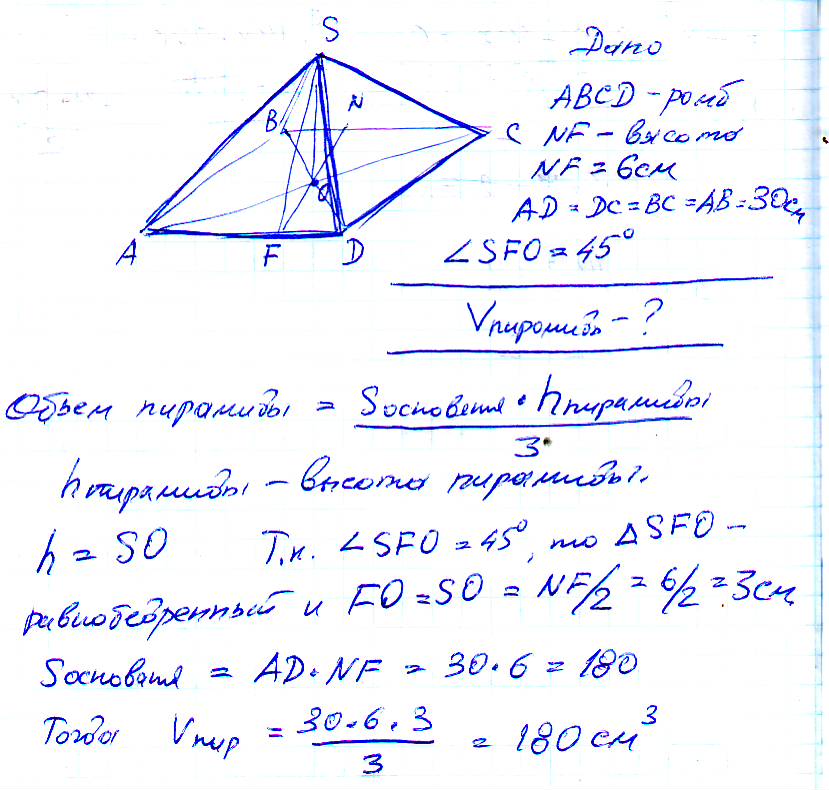 S
B
N
C
O
A
F
D
Дано
ABCD - ромб
NF - высота
NF = 6см
AD = DC = BC = AB = 30см
∠SFO = 45°
Vпирамиды - ?
Объем пирамиды = Sоснования · hпирамиды
3
hпирамиды - высота пирамиды.
h = SO Т.к. ∠SFO = 45°, то ΔSFO -
равнобедренный и FO = SO = NF/2 = 6/2 = 3см
Sоснования = AD · NF = 30 · 6 = 180
Тогда Vпир = 30·6·3 = 180 см³
3